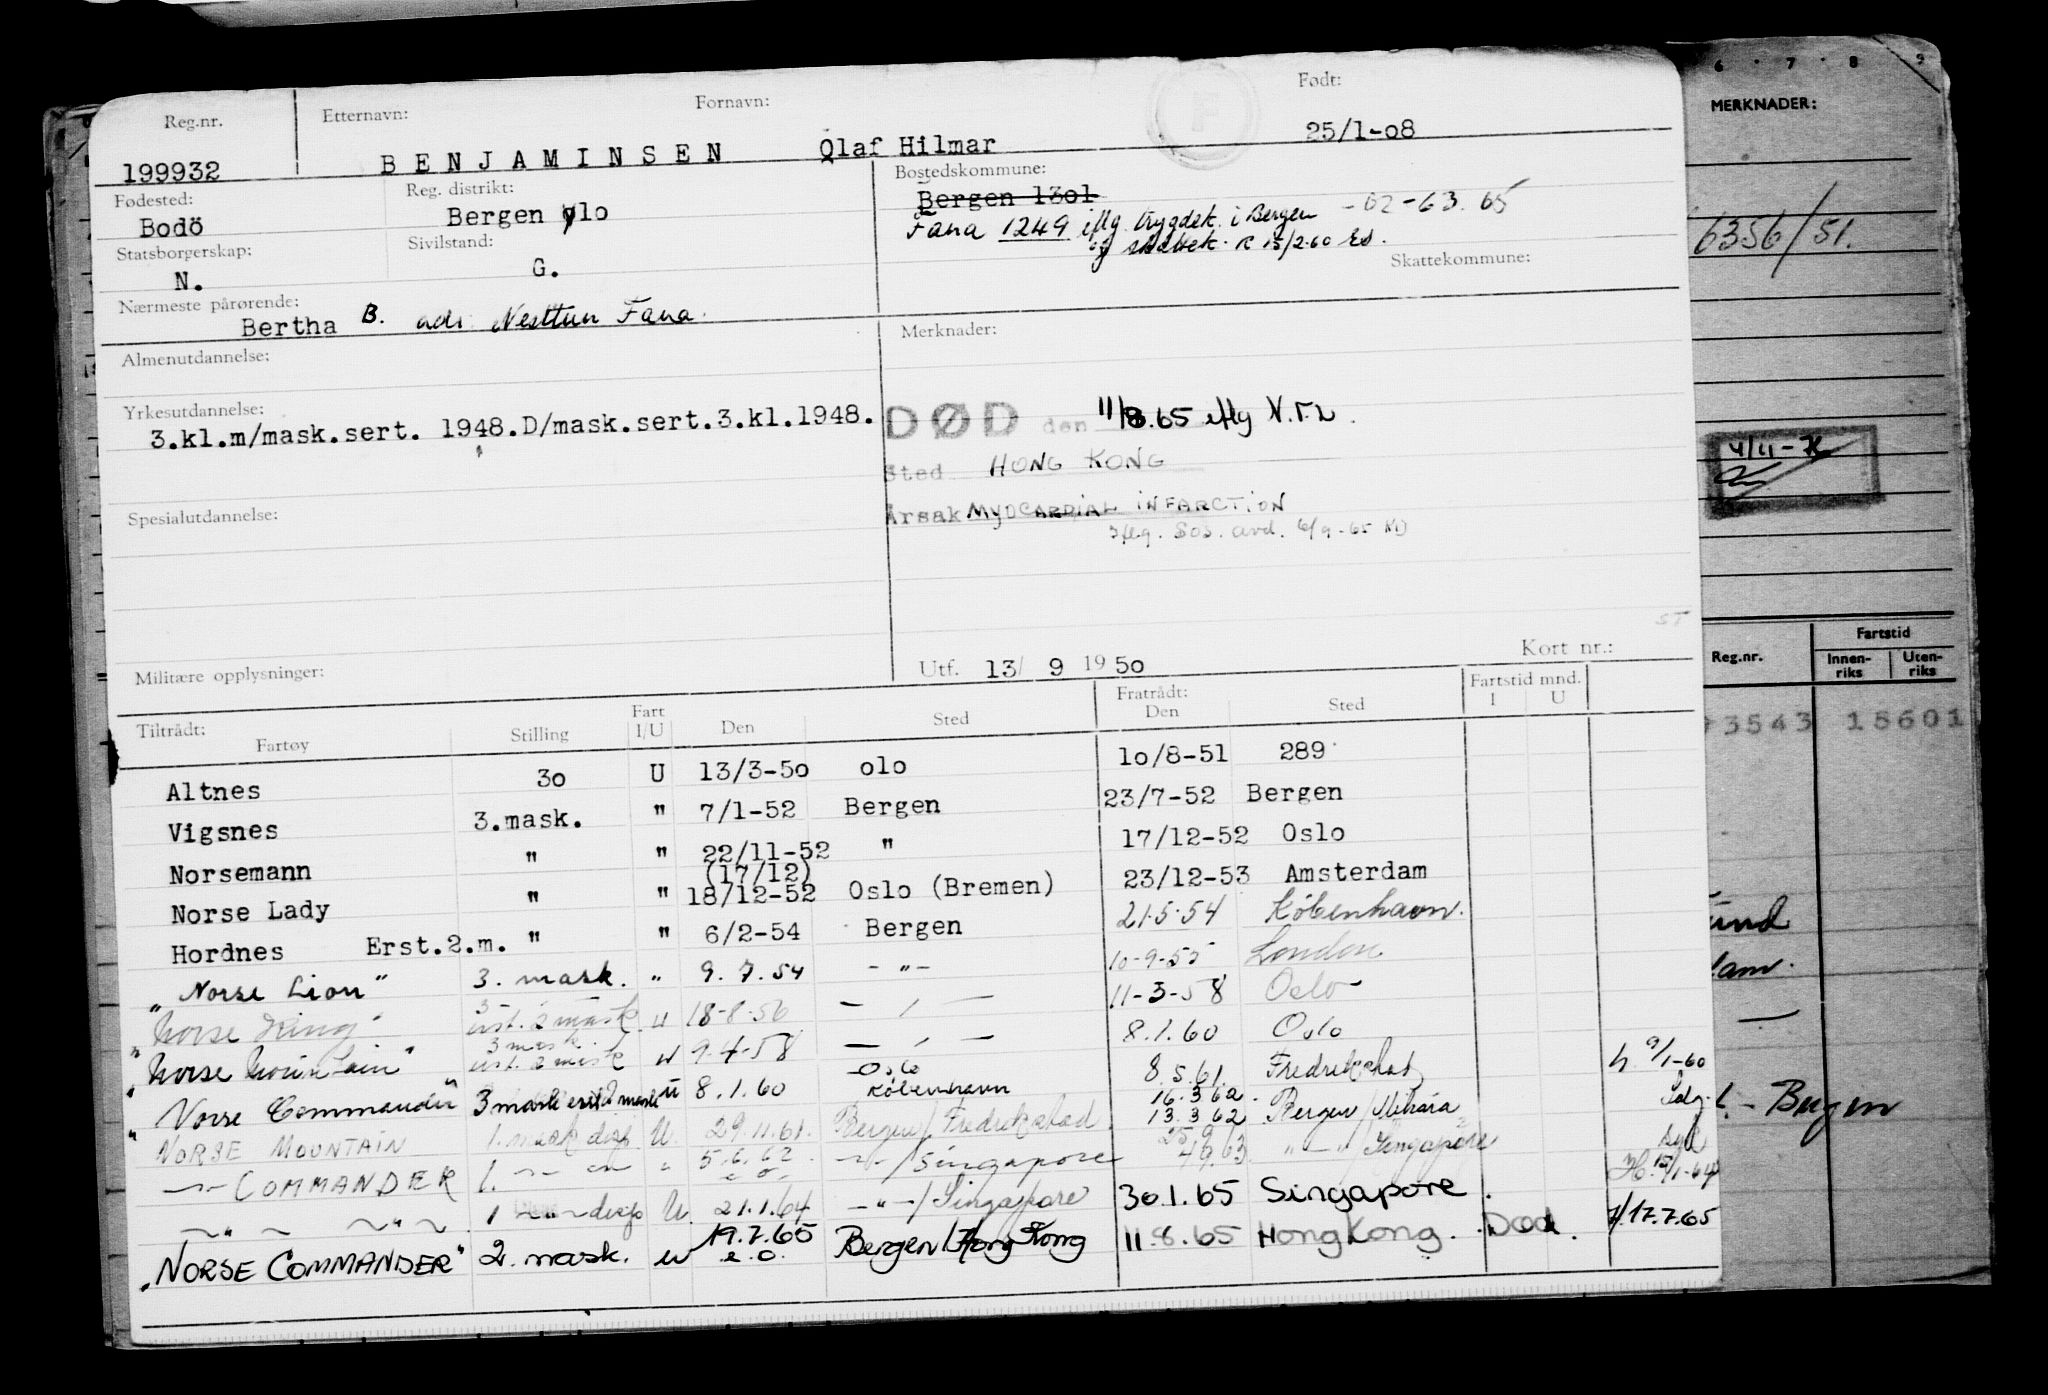 6 · 7 · 8 9
MERKNADER:
Reg.nr. Etternavn: Fornavn: Født:
199932 BENJAMINSEN Olaf Hilmar 25/1-08
Fødested: Reg. distrikt: Bostedskommune:
Bodö Bergen olo Bergen 1301
Fana 1249 iflg. trygdek. i Bergen -02-63. 65
Statsborgerskap: Sivilstand:
N. G.
Skattekommune:
6356/51.
Nærmeste pårørende:
Bertha B. adr. Nesttun Fana.
Merknader:
Almenutdannelse:
Yrkesutdannelse:
3.kl.m/mask.sert. 1948.D/mask.sert.3.kl.1948.
DØD den 11/8.65 iflg N.T.L.
Sted HONG KONG
Årsak MYOCARDIAL INFARCTION
Iflg. Sos. avd. 6/9-65
4/11-
Spesialutdannelse:
Militære opplysninger:
Utf. 13/ 9 1950
Kort nr.:
Reg.nr. Fartstid
Innen-riks Uten-riks
3543 15601
Tiltrådt: Fratrådt: Fartstid mnd.
Fartøy Stilling Fart I/U Den Sted Den Sted I U
Altnes 30 U 13/3-50 olo 10/8-51 289
Vigsnes 3.mask. " 7/1-52 Bergen 23/7-52 Bergen
Norsemann " " 22/11-52 " 17/12-52 Oslo
(17/12)
Norse Lady " " 18/12-52 Oslo (Bremen) 23/12-53 Amsterdam
Hordnes Erst.2.m. " " 6/2-54 Bergen 21.5.54 København.
"Norse Lion" 3. mask. " 9.7.54 - " - 10-9-55 London
"Norse King" 3 erst. 2 mask U 18-8-56 — " — 11-3-58 Oslo
"Norse Mountain" 3 mask. erst. 2 mask U 9-4-58 — " — 8.1.60 Oslo
"Norse Commander" 3 mask erst 2 mask U 8.1.60 Oslo København 8.5.61. Fredrikstad h 9/1-60
NORSE MOUNTAIN 1. mask disp U. 29.11.61. Bergen/Fredrikstad 16.3.62. 13.3.62 Bergen/Mihara
—"— COMMANDER 1. —"— " 5.6.62 e.o. —"—/Singapore 4.9.63 " —"—/Singapore
—"— —"— 1 —"— disp U. 21.1.64 —"—/Singapore 30.1.65 Singapore. H. 15/1-64
"NORSE COMMANDER" 2. mask. U 19.7.65 e.o. Bergen/Hong Kong 11.8.65 Hong Kong. Død. H. 17.7.65
Bergen